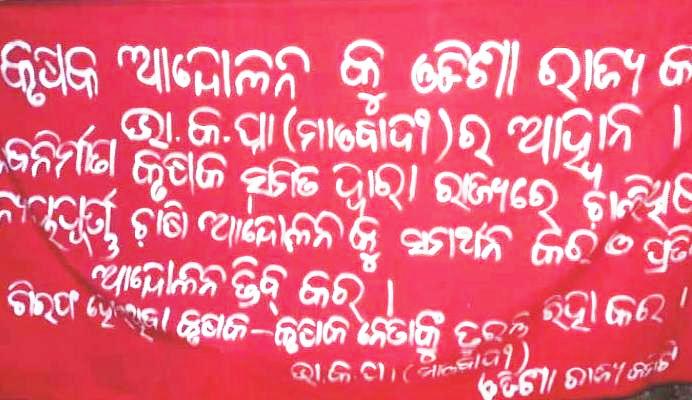 କୃଷକ ଆନ୍ଦୋଳନ କୁ ଓଡିଶା ରାଜ୍ୟ
ଭା.କ.ପା (ମାଓବାଦୀ) ର ଆହ୍ୱାନ ।
କୃଷକ ସମିତି ଦ୍ୱାରା ରାଜ୍ୟରେ
ଚାଷି ଆନ୍ଦୋଳନ କୁ ସମର୍ଥନ କର ଓ
ଆନ୍ଦୋଳନ ତିବ୍ର କର ।
ଗିରଫ କୃଷକ - କୃଷକ ନେତାଙ୍କୁ ତୁରନ୍ତ ରିହା କର ।
ଭା.କ.ପା. (ମାଓବାଦୀ)
ଓଡିଶା ରାଜ୍ୟ କମିଟି